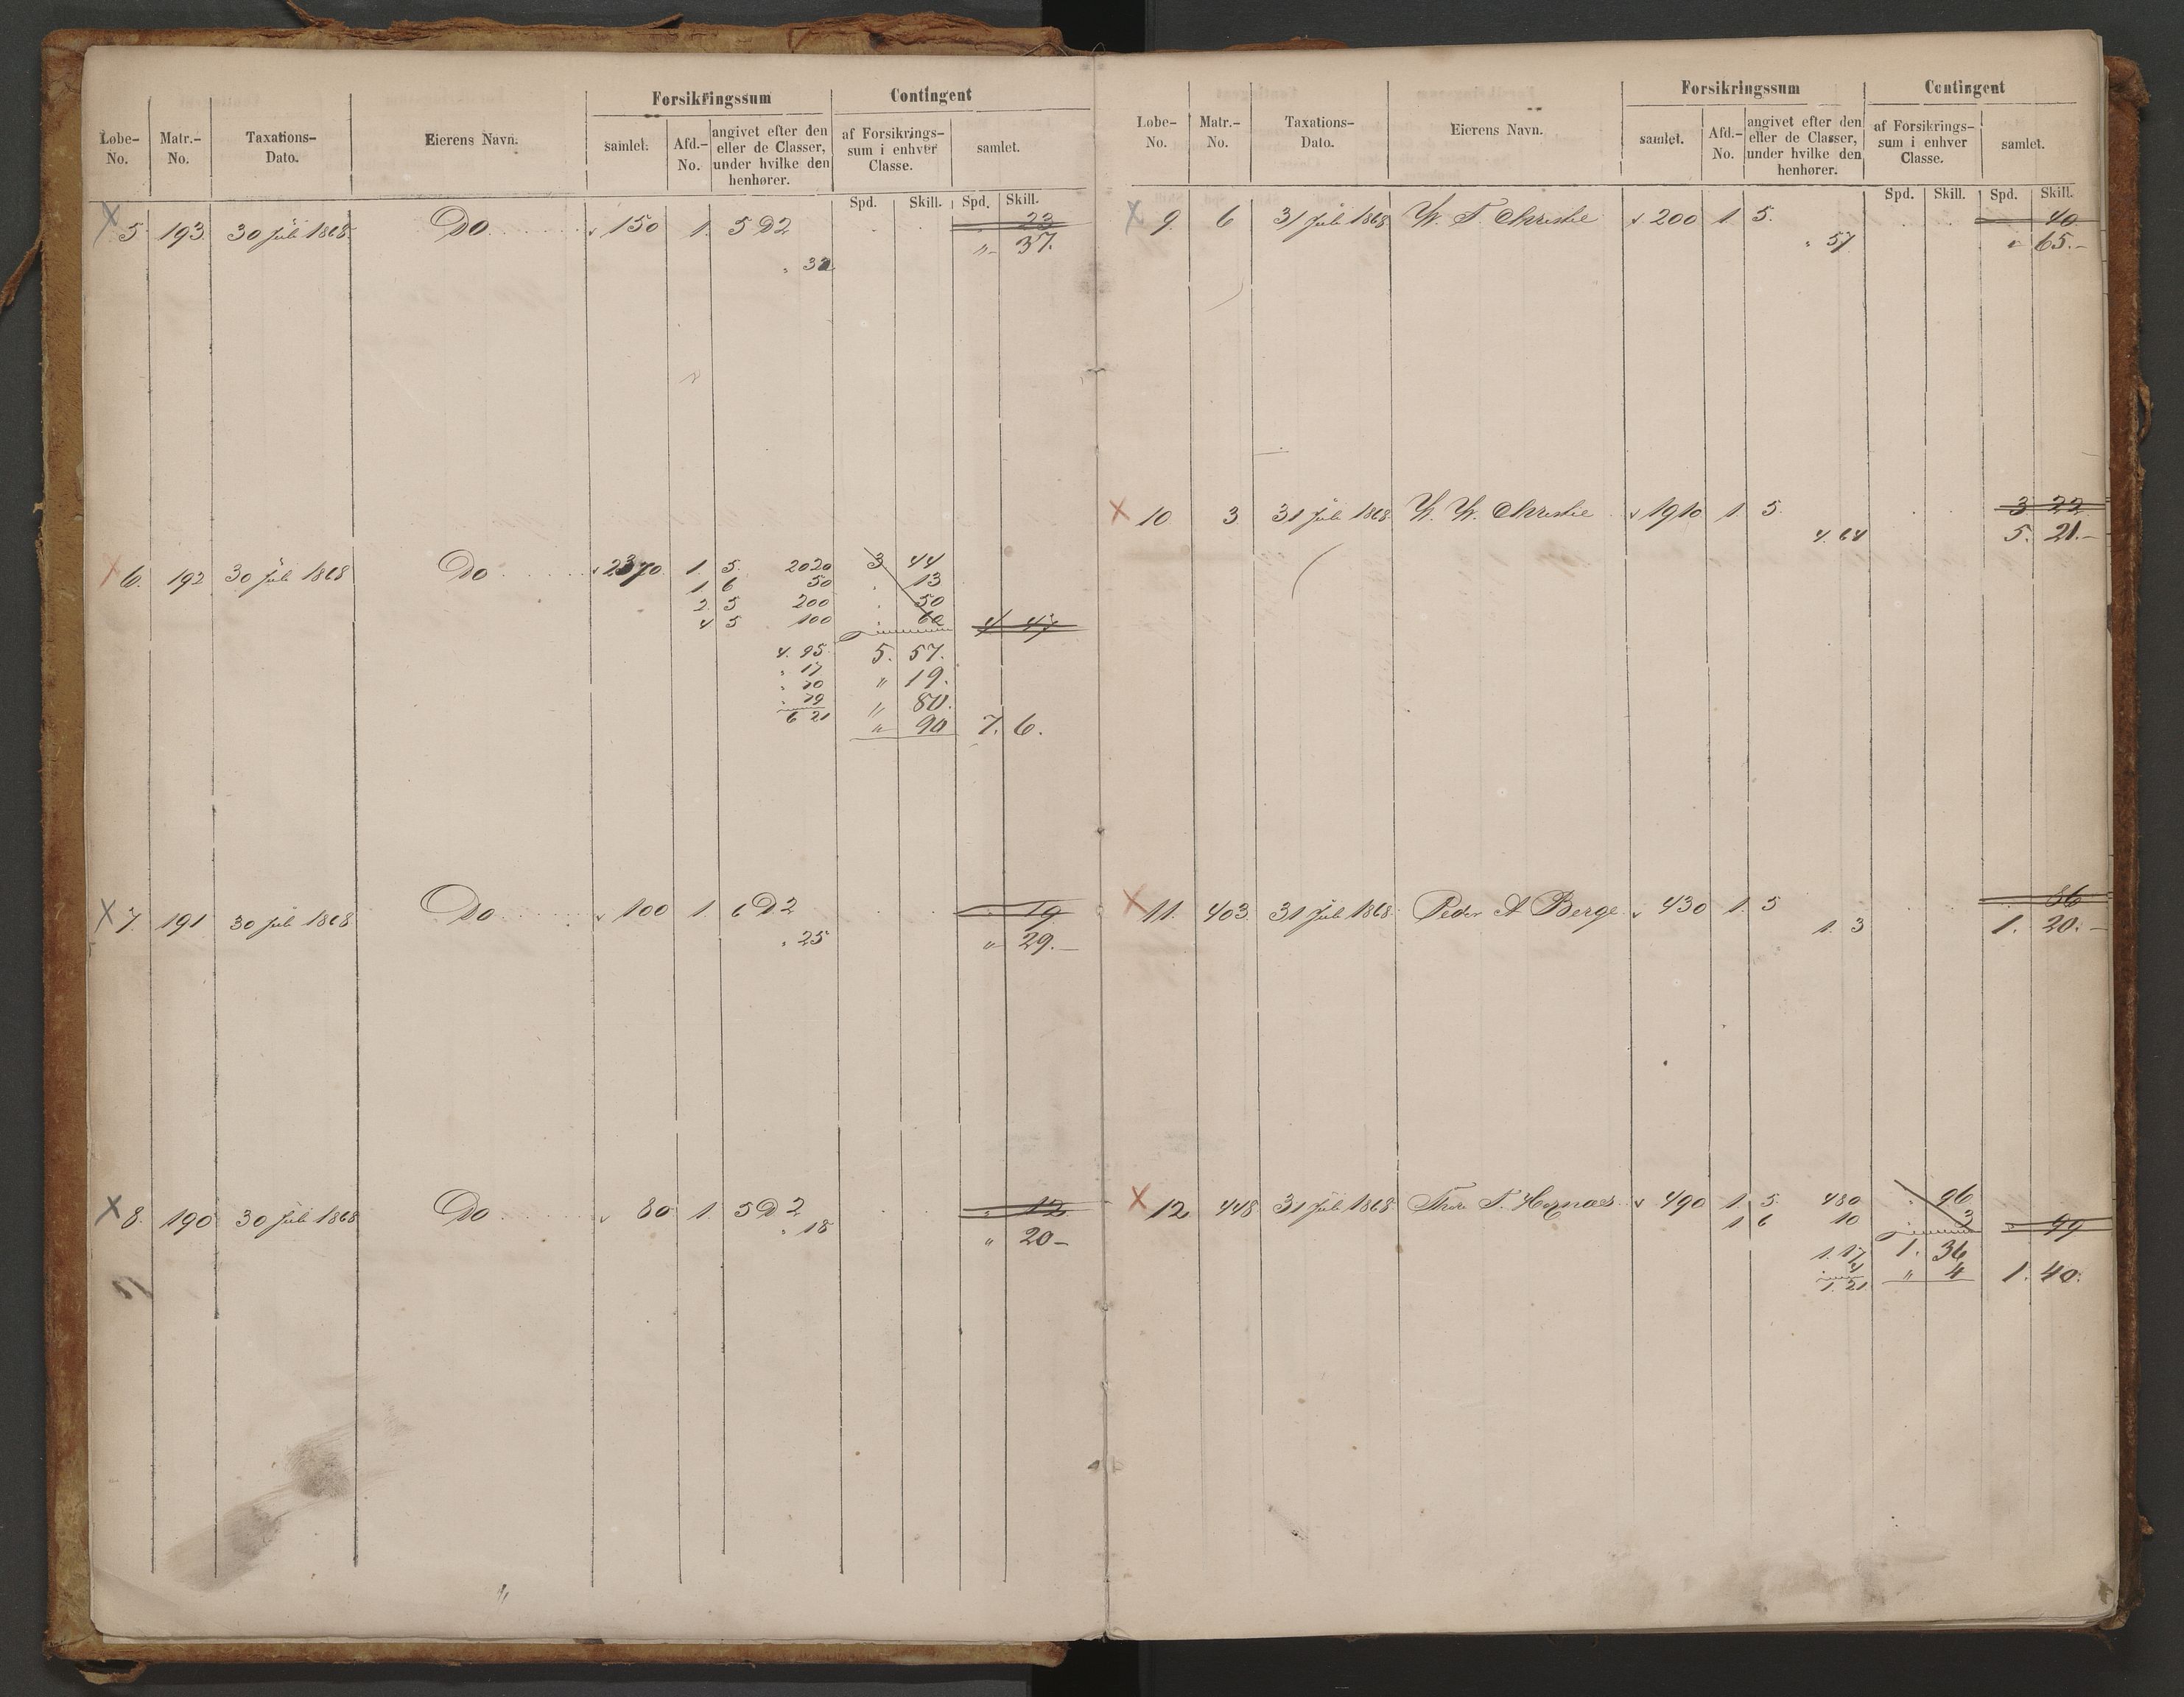 Forsikringssum Contingent
Løbe-No. Matr.-No. Taxations-Dato. Eierens Navn. samlet. Afd.-No. angivet efter den eller de Classer, under hvilke den henhører. af Forsikrings-sum i enhver Classe. samlet.
Spd. Skill. Spd. Skill.
X 5 193 30 Juli 1868 Do 150 1. 5 D2 23
" 37.
32
X 6. 192 30 Juli 1868 Do 2370 1. 5. 2020 3 44
1 6 50 13
2. 5 200 50
4 5 100 4 47
4. 95 5. 57.
17 " 19.
70 " 80.
79
6 21 " 90 7. 6.
X 7. 191 30 Juli 1868 Do 100 1. 6 D2 19
25 " 29.
X 8. 190 30 Juli 1868 Do 80 1. 5 D2 12
18 " 20
Forsikringssum Contingent
Løbe-No. Matr.-No. Taxations-Dato. Eierens Navn. samlet. Afd.-No. angivet efter den eller de Classer, under hvilke den henhører. af Forsikrings-sum i enhver Classe. samlet.
Spd. Skill. Spd. Skill.
X 9. 6 31 Juli 1868 W. F. Christie 200 1 5. 40
57 " 65.
X 10 3 31 Juli 1868 W. W. Christie 1910 1. 5. 3 22
4. 64 5. 21.
X 11. 403 31 Juli 1868 Peder A Berge 430 1. 5 86
1. 3 1. 20.
X 12 448 31 Juli 1868 490 1. 5. 480 96
1 6 10 3 99
1. 17 1. 36
4 " 4 1. 40.
1. 21